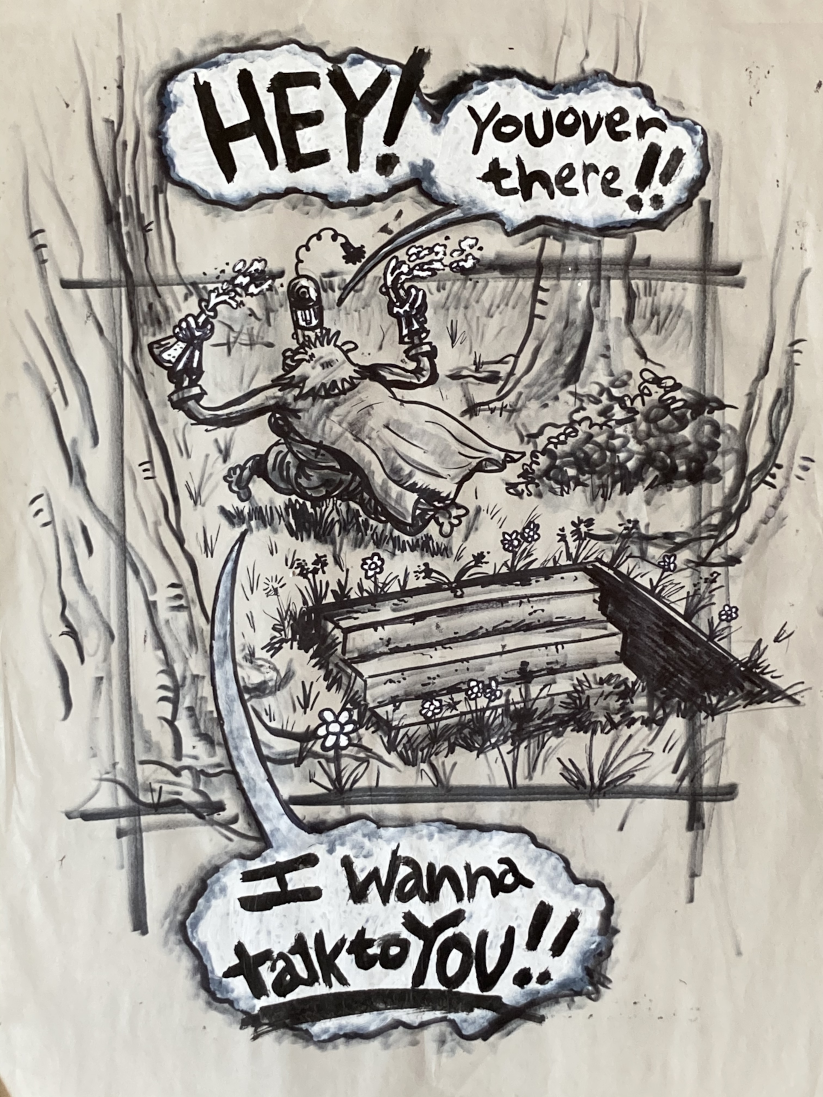 HEY!
You over
there!!
I wanna
talk to YOU!!